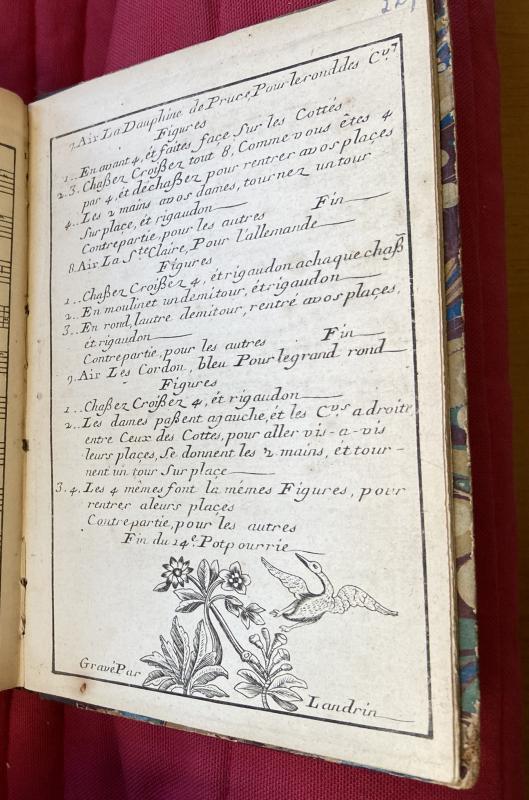 7. Air La Dauphine de Pruce, Pour le rond des C.vrs
Figures
1.. En avant 4, ét faites face sur les Cottés
2.3. Chaßez Croißez tout 8, Comme vous êtes 4
par 4, ét déchaßez pour rentrer avos plaçes
4.. Les 2 mains avos dames, tournez un tour
sur plaçe, ét rigaudon
Contrepartie, pour les autres Fin
8. Air La Ste Claire, Pour l'allemande
Figures
1.. Chaßez Croißez 4, ét rigaudon achaque chaß
2.. En moulinet un demitour, ét rigaudon
3.. En rond, lautre demitour, rentré avos plaçes,
ét rigaudon
Contrepartie, pour les autres Fin
9. Air Les Cordon, bleu Pour le grand rond
Figures
1.. Chaßez Croißez 4, ét rigaudon
2.. Les dames paßent agauche, ét les C.vrs adroite
entre Ceux des Cottes, pour aller vis-a-vis
leurs plaçes, se donnent les 2 mains, ét tour-
nent un tour sur plaçe
3.4. Les 4 mêmes font la mémes Figures, pour
rentrer aleurs plaçes
Contrepartie, pour les autres
Fin du 14e. Potpourrie
Gravé Par Landrin